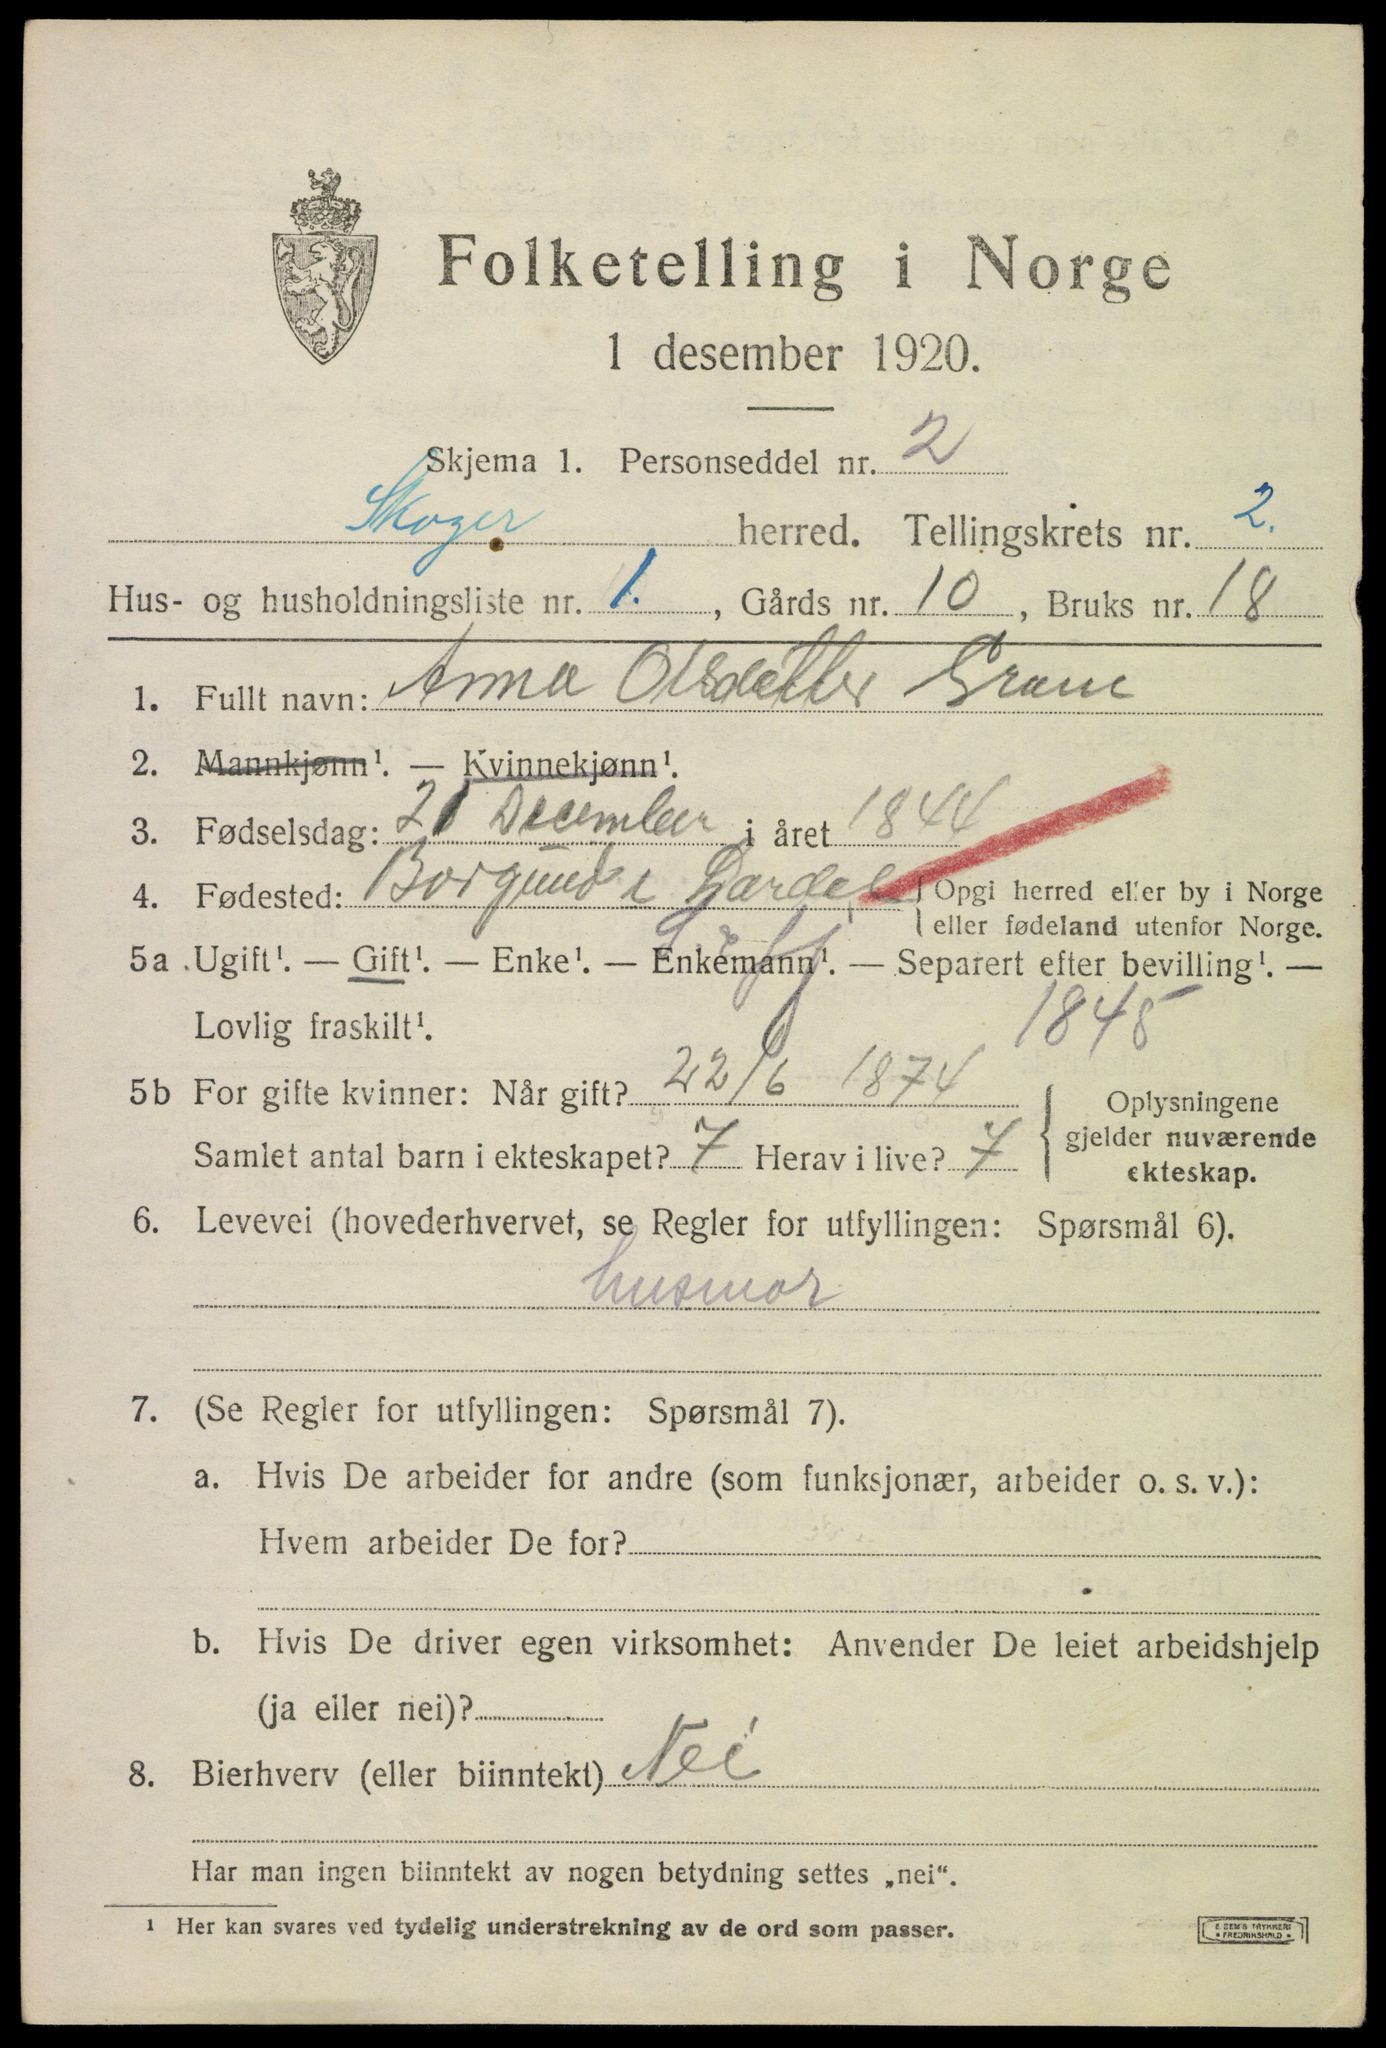 Folketelling i Norge
1 desember 1920.
Skjema 1. Personseddel nr. 2
Skoger herred. Tellingskrets nr. 2.
Hus- og husholdningsliste nr. 1., Gårds nr. 10, Bruks nr. 18
1. Fullt navn: Anna Olsdatter
2. Mannkjønn¹. — Kvinnekjønn¹.
3. Fødselsdag: 21 December i året 1844
4. Fødested: Borgund i { Opgi herred eller by i Norge
{ eller fødeland utenfor Norge.
5a Ugift¹. — Gift¹. — Enke¹. — Enkemann¹. — Separert efter bevilling¹. —
Lovlig fraskilt¹. 1845
5b For gifte kvinner: Når gift? 22/6 1874 { Oplysningene
gjelder nuværende
ekteskap.
Samlet antal barn i ekteskapet? 7 Herav i live? 7
6. Levevei (hovederhvervet, se Regler for utfyllingen: Spørsmål 6).
husmor
7. (Se Regler for utfyllingen: Spørsmål 7).
a. Hvis De arbeider for andre (som funksjonær, arbeider o. s. v.):
Hvem arbeider De for?
b. Hvis De driver egen virksomhet: Anvender De leiet arbeidshjelp
(ja eller nei)?
8. Bierhverv (eller biinntekt) Nei
Har man ingen biinntekt av nogen betydning settes „nei“.
¹ Her kan svares ved tydelig understrekning av de ord som passer.
E. SEM'S TRYKKERI
• FREDRIKSHALD •